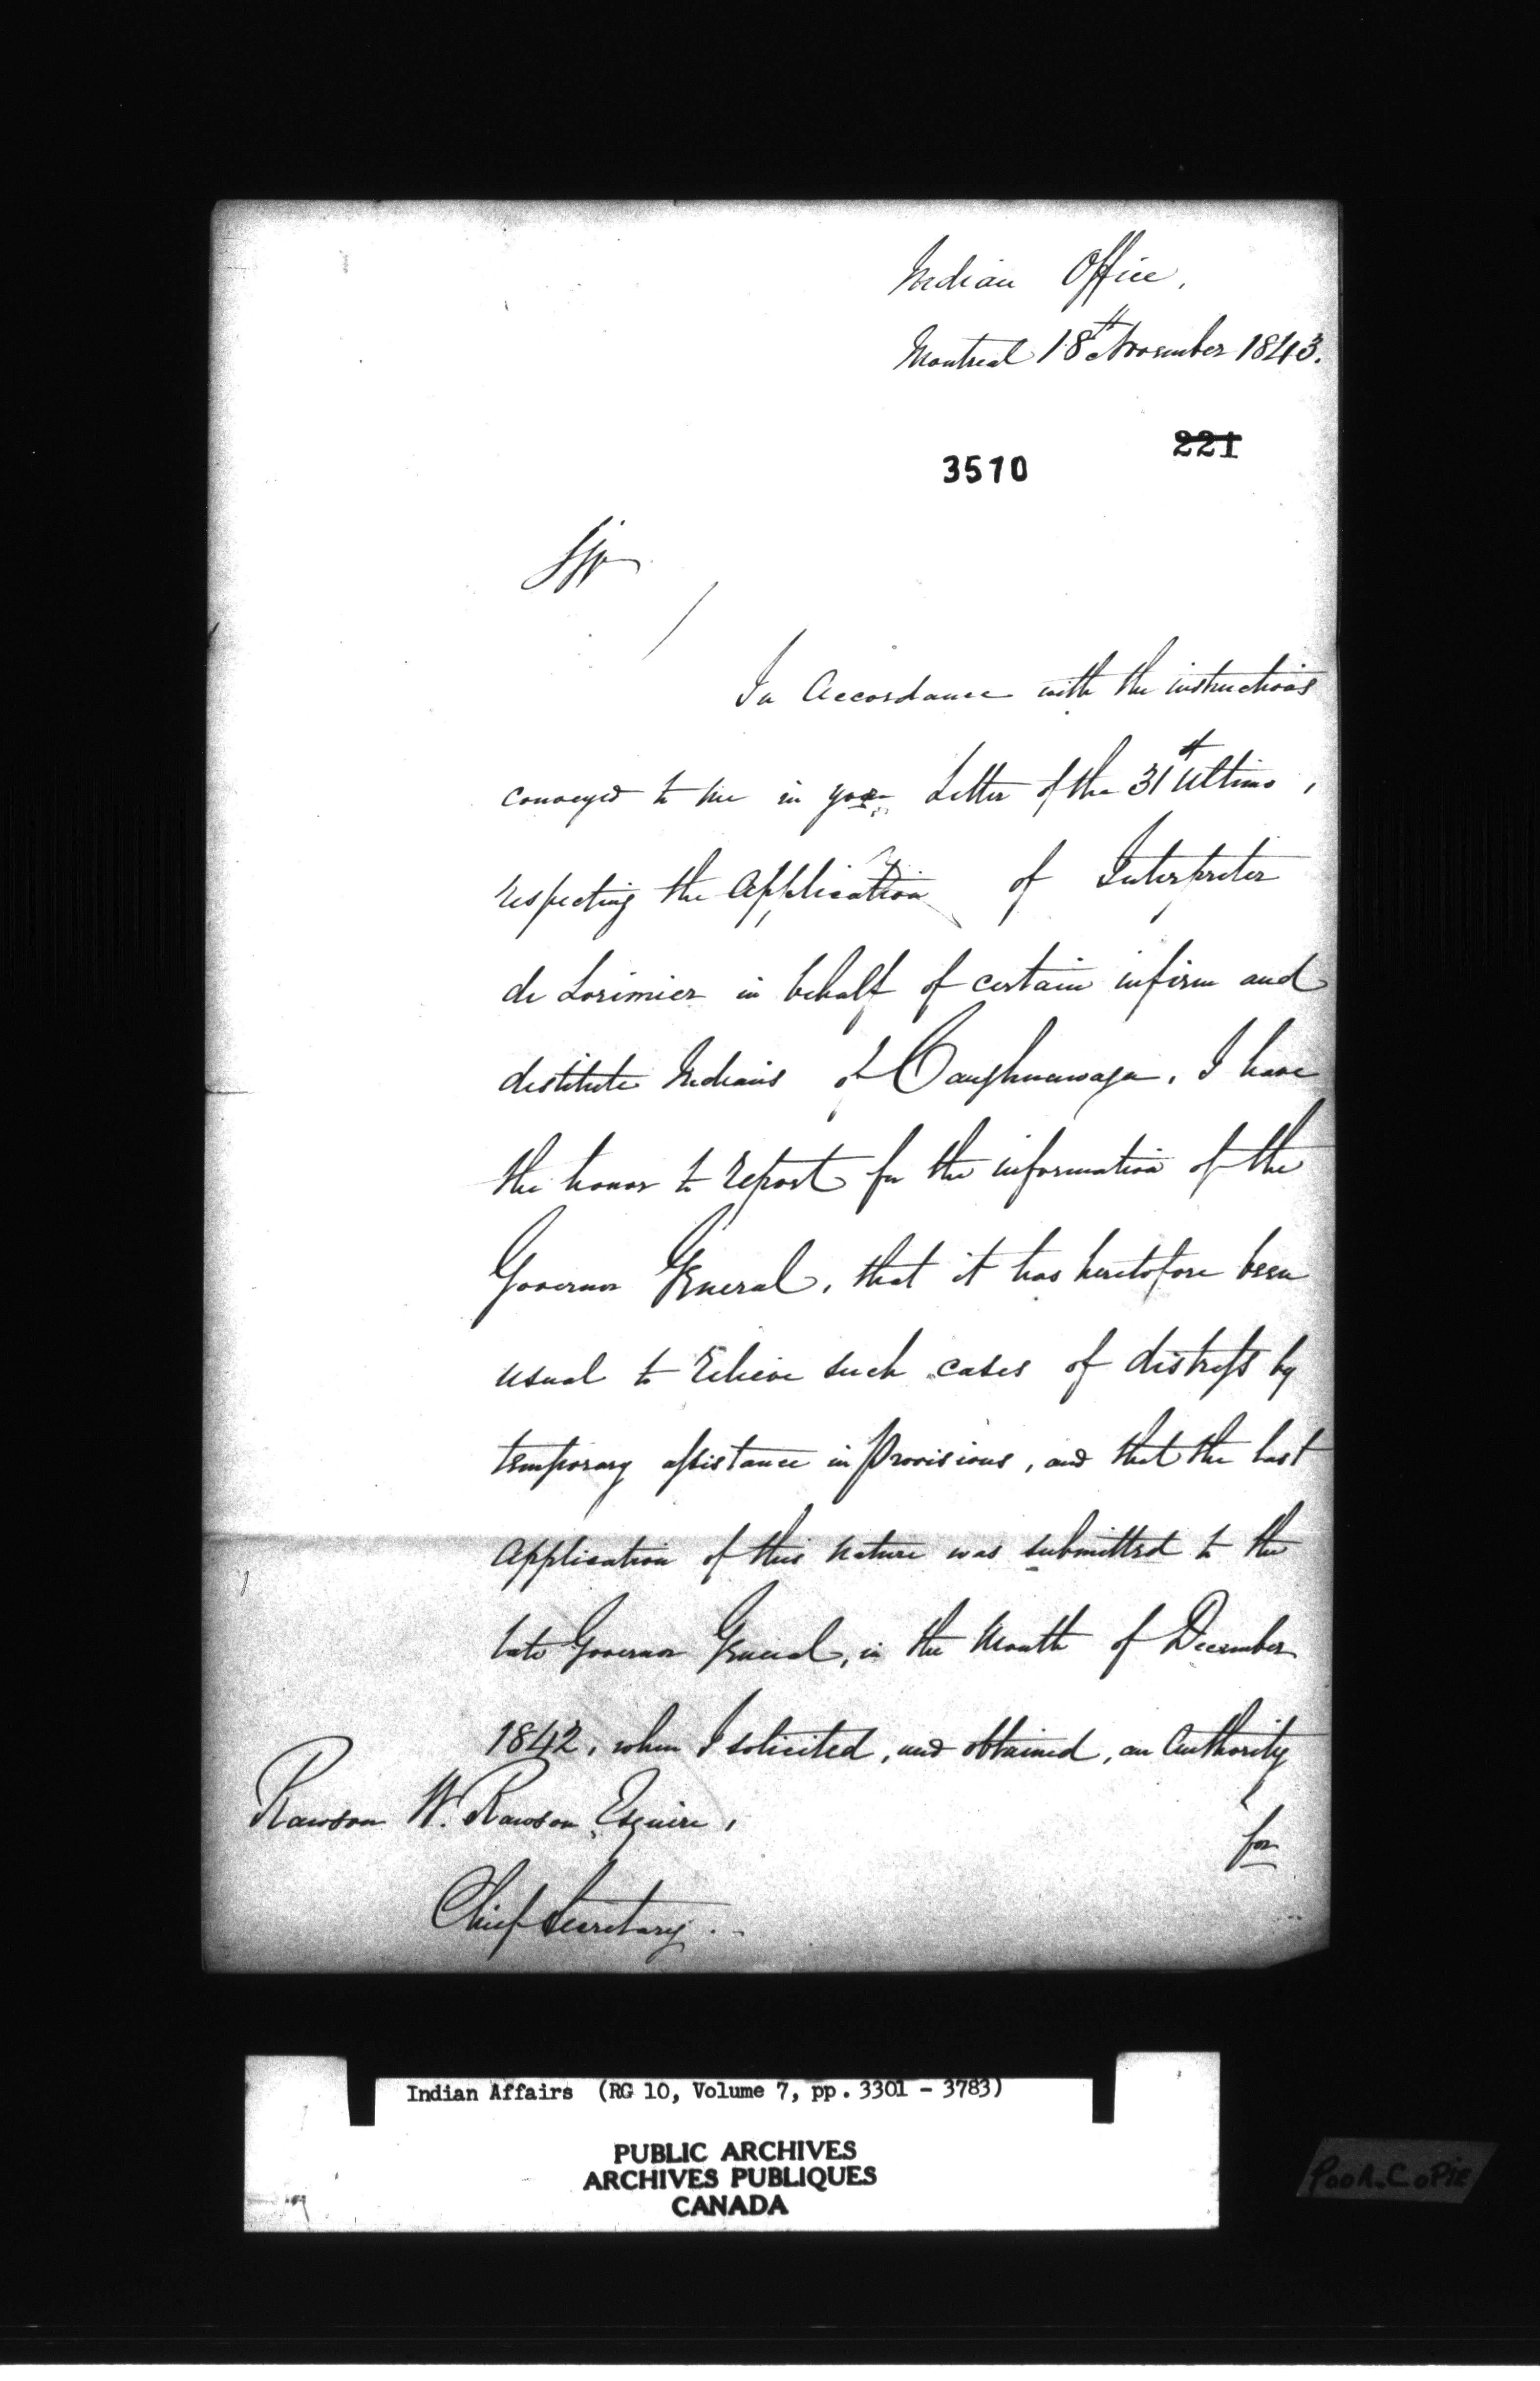 Indian Office,
Montreal 18th November 1843.
221
3510
Sir
In Accordance with the instructions
conveyed to me in your Letter of the 31st Ultimo,
respecting the Application of Interpreter
de Lorimier in behalf of certain infirm and
destitute Indians of Caughnawaga, I have
the honor to report for the information of the
Governor General, that it has heretofore been
usual to relieve such cases of distress by
temporary assistance in Provisions, and that the last
Application of this nature was submitted to the
late Governor General, in the Month of December
1842, when I solicited, and obtained, an Authority
for
Rawson W. Rawson Esquire,
Chief Secretary.
Indian Affairs (RG 10, Volume 7, pp. 3301 - 3783)
PUBLIC ARCHIVES
ARCHIVES PUBLIQUES
CANADA
POOR COPIE